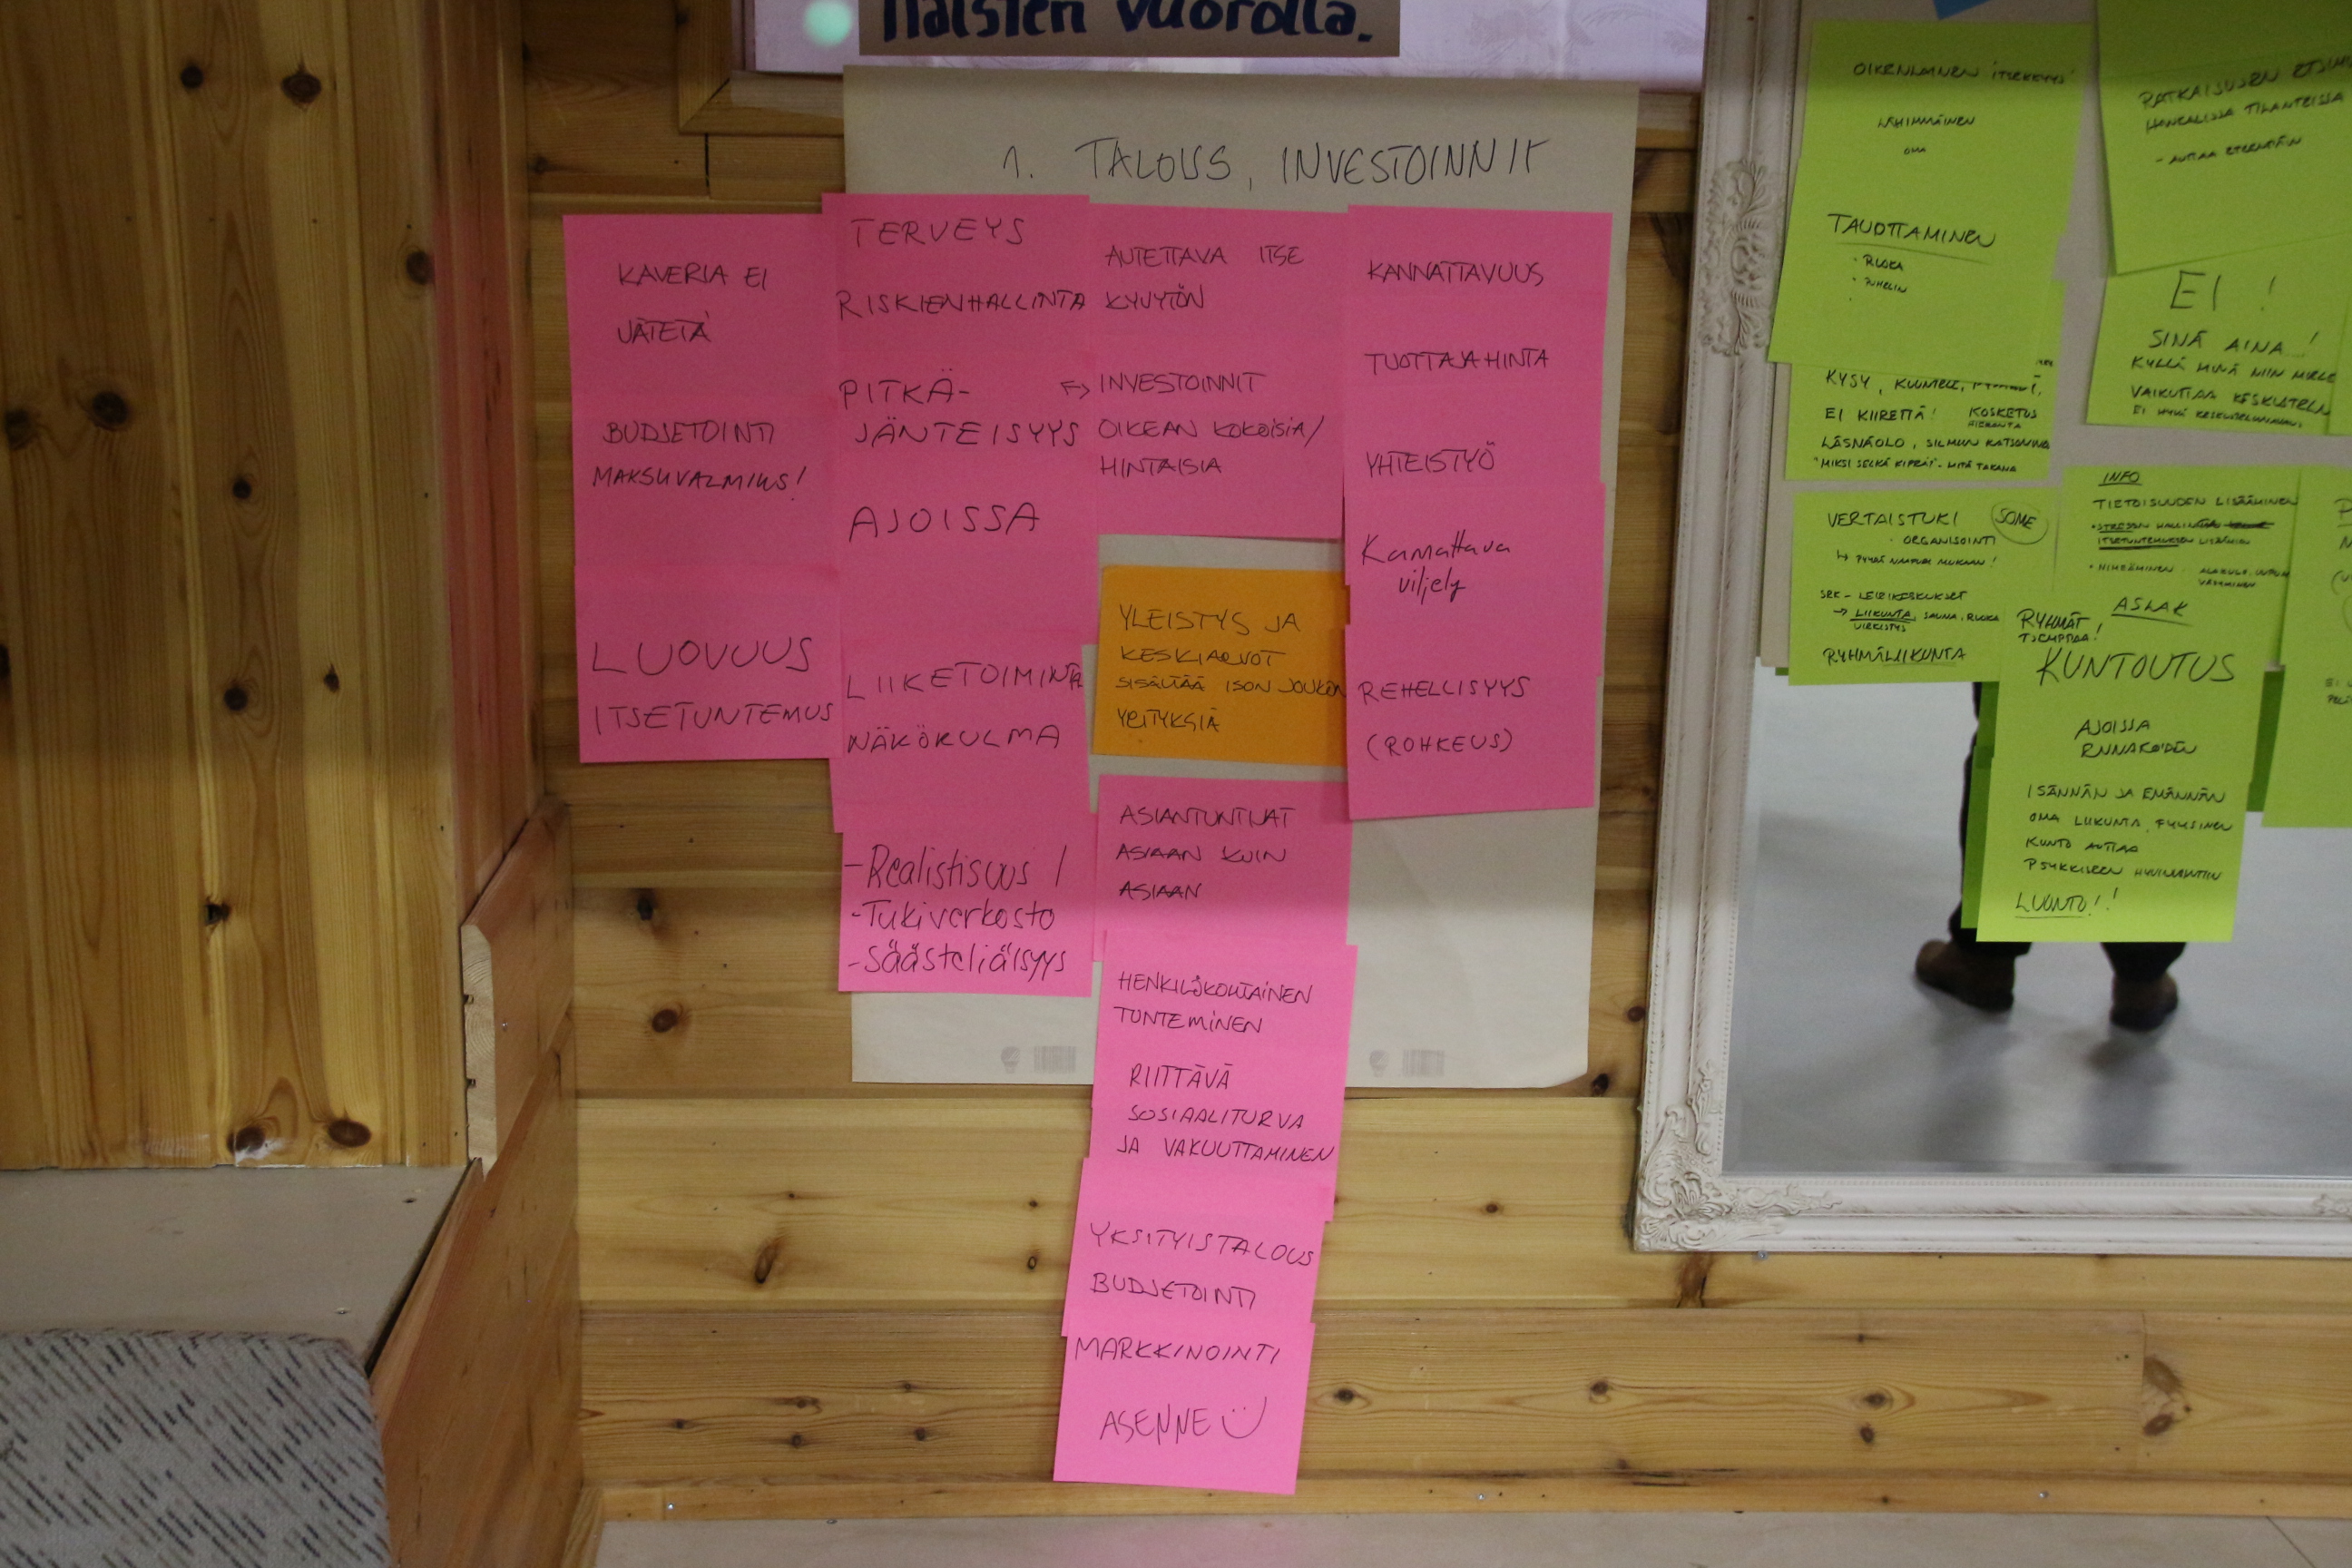 naisten vuorolla.
1. TALOUS, INVESTOINNIT
KAVERIA EI
JÄTETÄ
BUDJETOINTI
MAKSUVALMIUS!
LUOVUUS
ITSETUNTEMUS
TERVEYS
RISKIENHALLINTA
PITKÄ-
JÄNTEISYYS
AJOISSA
LIIKETOIMINTA
NÄKÖKULMA
-Realistisuus /
-Tukiverkosto
-Säästeliäisyys
AUTETTAVA ITSE
KYVYTÖN
↔ INVESTOINNIT
OIKEAN KOKOISIA/
HINTAISIA
YLEISTYS JA
KESKIARVOT
SISÄLTÄÄ ISON JOUKON
YRITYKSIÄ
ASIANTUNTIJAT
ASIAAN KUIN
ASIAAN
HENKILÖKOHTAINEN
TUNTEMINEN
RIITTÄVÄ
SOSIAALITURVA
JA VAKUUTTAMINEN
YKSITYISTALOUS
BUDJETOINTI
MARKKINOINTI
ASENNE
KANNATTAVUUS
TUOTTAJAHINTA
YHTEISTYÖ
Kannattava
viljely
REHELLISYYS
(ROHKEUS)
OIKENLAINEN "ITSEKKYYS"
LÄHIMMÄINEN
OMA
TAUOTTAMINEN
· RUOKA
· PUHELIN
KYSY, KUUNTELE,
EI KIIRETTÄ! KOSKETUS
HIERONTA
LÄSNÄOLO, SILMIIN KATSOMINEN
"MIKSI SELKÄ KIPEÄ" - MITÄ TAKANA
VERTAISTUKI SOME
· ORGANISOINTI
↳ PYYDÄ NAAPURI MUKAAN!
SRK - LEIRIKESKUKSET
→ LIIKUNTA, SAUNA, RUOKA
VIRKISTYS
RYHMÄLIIKUNTA
RATKAISUJEN ETSIMI
HANKALISSA TILANTEISSA
- AUTTAA ETEENPÄIN
EI !
SINÄ AINA...!
KYLLÄ MINÄ NIIN MIELE
VAIKUTTAA KESKUSTELUN
INFO
TIETOISUUDEN LISÄÄMINEN
· STRESSIN HALLINTAA
ITSETUNTEMUKSEN LISÄÄMINEN
· NIMEÄMINEN
RYHMÄT ASLAK
TSEMPPAA!
KUNTOUTUS
AJOISSA
ENNAKOIDEN
ISÄNNÄN JA EMÄNNÄN
OMA LIIKUNTA, FYYSINEN
KUNTO AUTTAA
PSYKKISEEN HYVINVOINTIIN
LUONTO!!